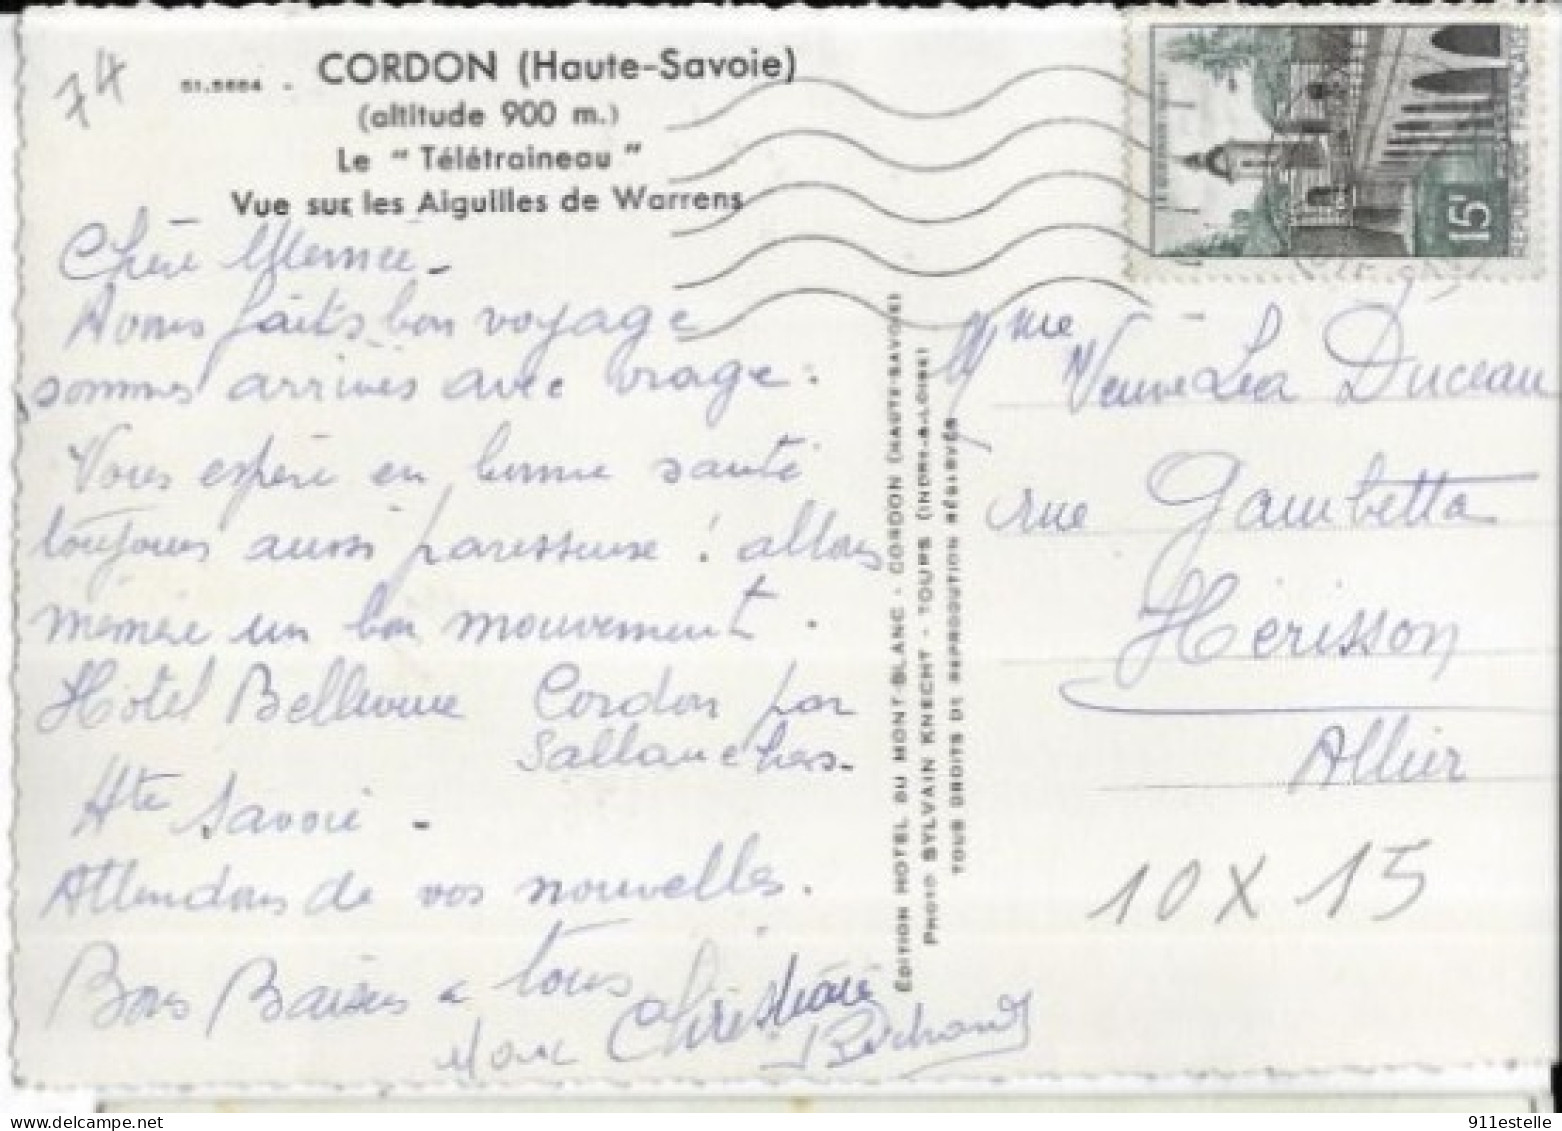 74
51.5664 - CORDON (Haute-Savoie)
(altitude 900 m.)
Le " Télétraineau "
Vue sur les Aiguilles de Warrens
Chère Mémée -
Avons faits bon voyage
sommes arrivés avec orage.
Vous espère en bonne santé
toujours aussi paresseuse ! allons
mémère un bon mouvement.
Hôtel Bellevue Cordon par
Sallanches -
Hte Savoie -
Attendons de vos nouvelles.
Bons Baisers a tous
Marc Christiane
Richard
ÉDITION HOTEL DU MONT-BLANC - CORDON (HAUTE-SAVOIE)
PHOTO SYLVAIN KNECHT - TOURS (INDRE-&-LOIRE)
TOUS DROITS DE REPRODUCTION RÉSERVÉS
LE QUESNOY (NORD)
15F
REPUBLIQUE FRANÇAISE
Mme Veuve Léa Duceau
rue Gambetta
Hérisson
Allier
10 x 15
911estelle